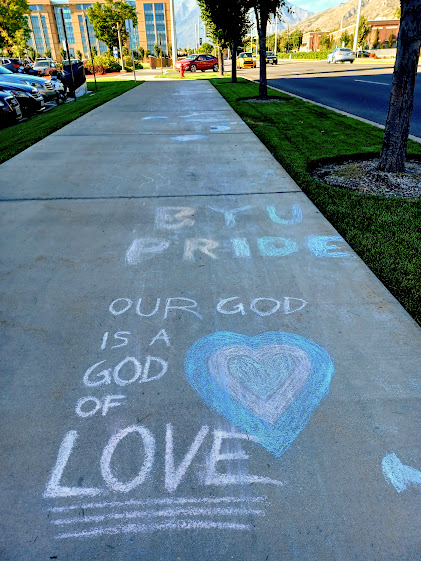 BYU
PRIDE
OUR GOD
IS A
GOD
OF
LOVE